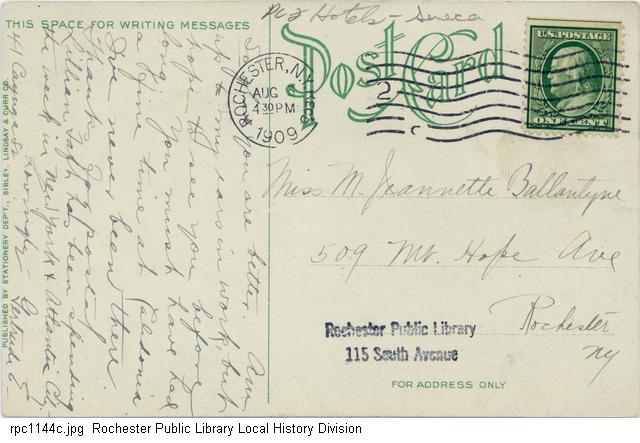 Pcz Hotels - Seneca
THIS SPACE FOR WRITING MESSAGES
Post Card
ROCHESTER, N.Y.
AUG
4 30 PM
1909
2
C
U.S. POSTAGE
ONE CENT
you are better. Am
up to my ears in work, but
hope to see you before
long. You must have had
a fine time at Caledonia
I've never been there.
Thanks for postal.
Lillian Taft has been spending
the week in New York & Atlantic City.
Lovingly Gertrude E
41 Cayuga St
Miss M. Jeannette Ballantyne
509 Mt. Hope Ave
Rochester
NY
Rochester Public Library
115 South Avenue
FOR ADDRESS ONLY
PUBLISHED BY STATIONERY DEPT., SIBLEY, LINDSAY & CURR CO.
rpc1144c.jpg Rochester Public Library Local History Division